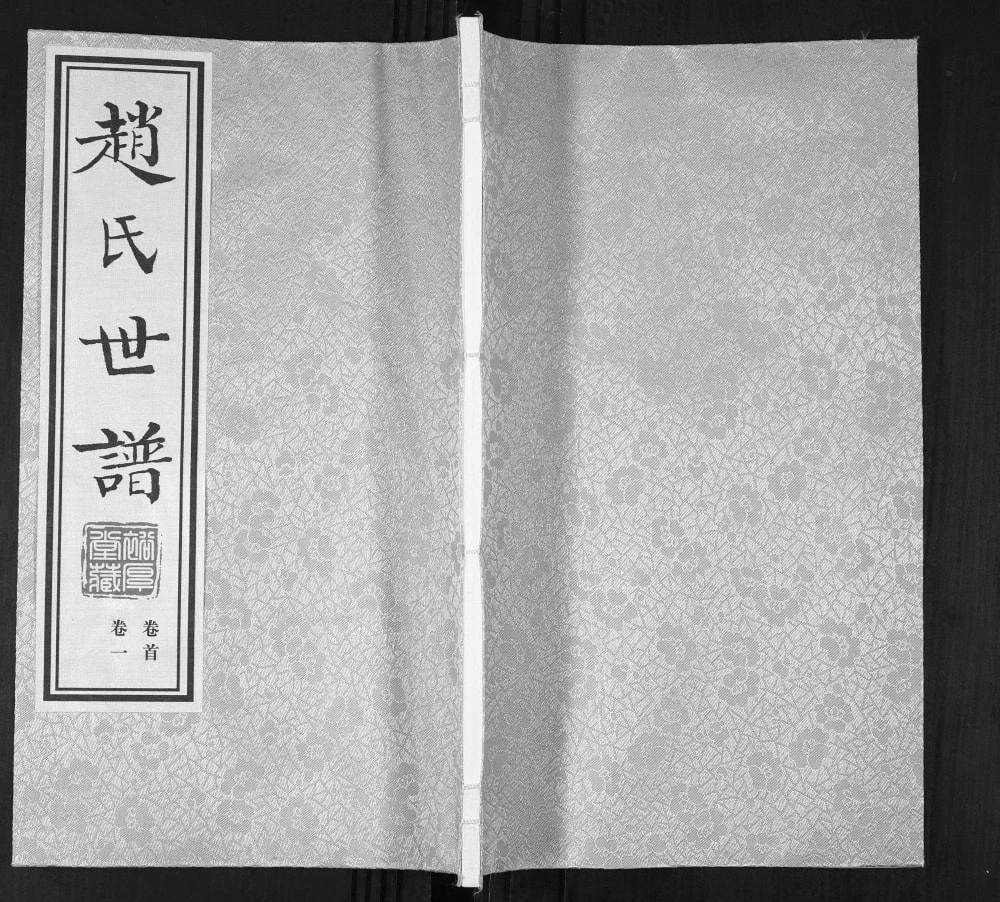 趙氏世譜
堂藏
卷首
卷一